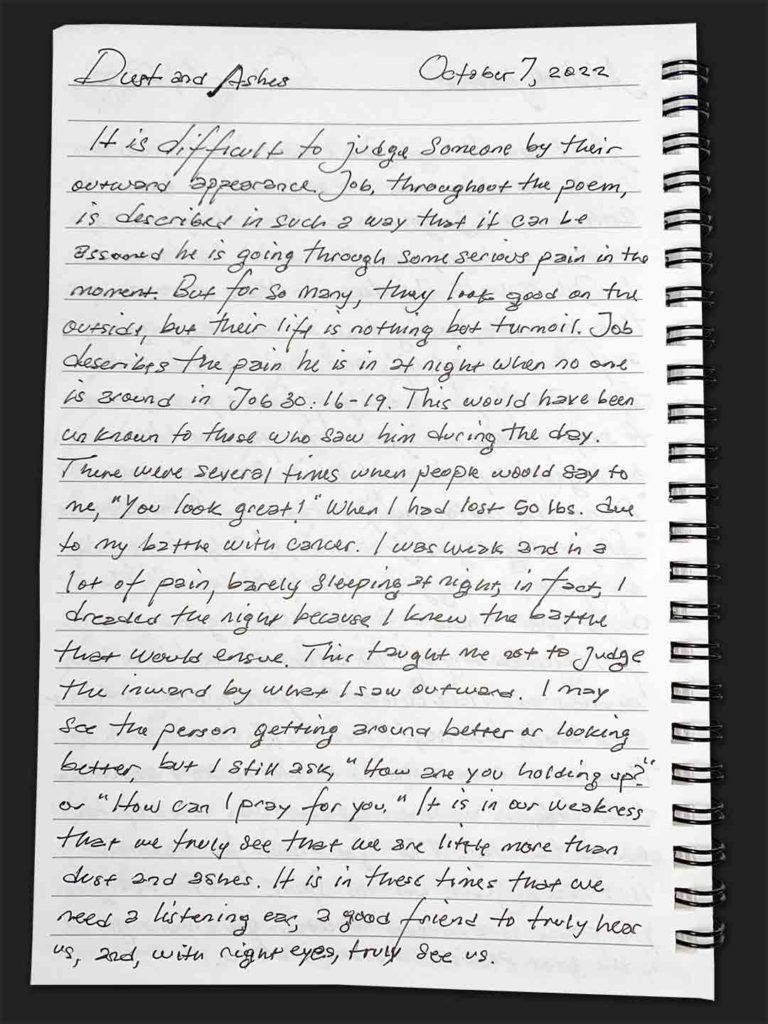 Dust and Ashes October 7, 2022
It is difficult to judge someone by their
outward appearance. Job, throughout the poem,
is described in such a way that it can be
assumed he is going through some serious pain in the
moment. But for so many, they look good on the
outside, but their life is nothing but turmoil. Job
describes the pain he is in at night when no one
is around in Job 30:16-19. This would have been
unknown to those who saw him during the day.
There were several times when people would say to
me, "You look great!" When I had lost 50 lbs. due
to my battle with cancer. I was weak and in a
lot of pain, barely sleeping at night, in fact, I
dreaded the night because I knew the battle
that would ensue. This taught me not to judge
the inward by what I saw outward. I may
see the person getting around better or looking
better, but I still ask, "How are you holding up?"
or "How can I pray for you." It is in our weakness
that we truly see that we are little more than
dust and ashes. It is in these times that we
need a listening ear, a good friend to truly hear
us, and, with right eyes, truly see us.